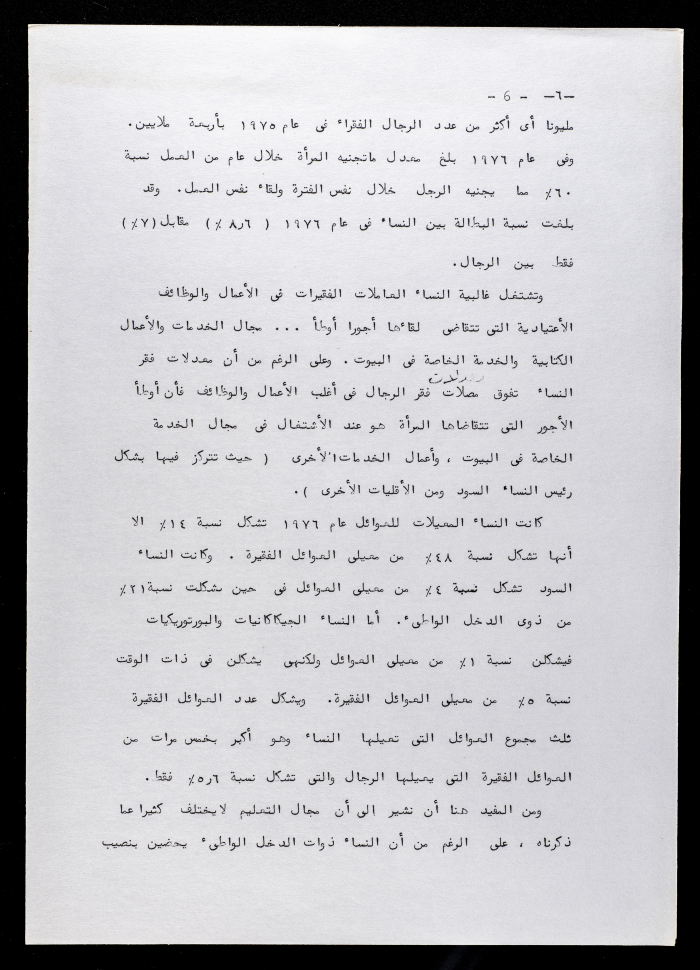 -٦- - 6 -
مليونا أى أكثر من عدد الرجال الفقراء فى عام ١٩٧٥ بأربعة ملايين.
وفى عام ١٩٧٦ بلغ معدل ماتجنيه المرأة خلال عام من العمل نسبة
٦٠٪ مما يجنيه الرجل خلال نفس الفترة ولقاء نفس العمل. وقد
بلغت نسبة البطالة بين النساء فى عام ١٩٧٦ ( ٨٫٦ ٪) مقابل (٧٪)
فقط بين الرجال.
وتشتغل غالبية النساء العاملات الفقيرات فى الأعمال والوظائف
الأعتيادية التى تتقاضى لقاءها أجورا أوطأ ... مجال الخدمات والأعمال
الكتابية والخدمة الخاصة فى البيوت. وعلى الرغم من أن معدلات فقر
النساء تفوق معدلات فقر الرجال فى أغلب الأعمال والوظائف فأن أوطأ
الأجور التى تتقاضاها المرأة هو عند الأشتغال فى مجال الخدمة
الخاصة فى البيوت ، وأعمال الخدمات الأخرى ( حيث تتركز فيها بشكل
رئيس النساء السود ومن الأقليات الأخرى ).
كانت النساء المعيلات للعوائل عام ١٩٧٦ تشكل نسبة ١٤٪ الا
أنها تشكل نسبة ٤٨٪ من معيلى العوائل الفقيرة . وكانت النساء
السود تشكل نسبة ٤٪ من معيلى العوائل فى حين شكلت نسبة ٢١٪
من ذوى الدخل الواطىء. أما النساء الجيكاكانيات والبورتوريكيات
فيشكلن نسبة ١٪ من معيلى العوائل ولكنهى يشكلن فى ذات الوقت
نسبة ٥٪ من معيلى العوائل الفقيرة. ويشكل عدد العوائل الفقيرة
ثلث مجموع العوائل التى تعيلها النساء وهو أكبر بخمس مرات من
العوائل الفقيرة التى يعيلها الرجال والتى تشكل نسبة ٥٫٦٪ فقط.
ومن المفيد هنا أن نشير الى أن مجال التعليم لايختلف كثيرا عما
ذكرناه ، على الرغم من أن النساء ذوات الدخل الواطىء يحضين بنصيب